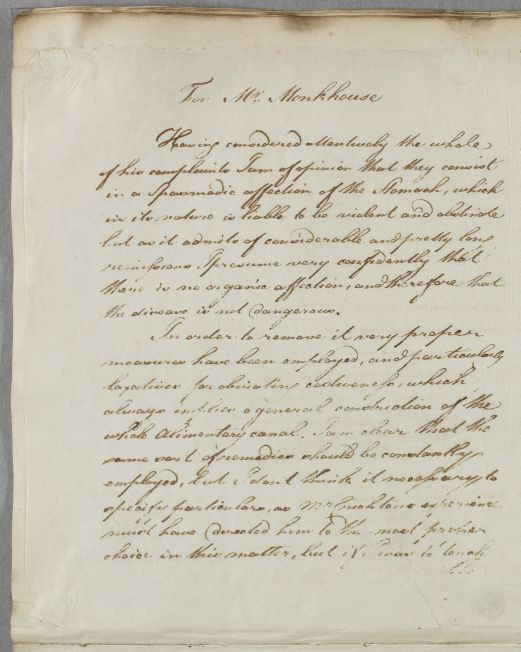 For Mr. Monkhouse
Having considered attentively the whole
of his complaints I am of opinion that they consist
in a Spasmodic affection of the Stomach, which
in its nature is liable to be violent and obstinate
but as it admits of considerable and pretty long
remissions, I presume very confidently that
their is no organic affection, and therefore that
the disease is not dangerous.
In order to remove it very proper
measures have been employed, and particularly
laxatives for obviating costiveness, which
always implies a general constriction of the
whole Alimentary canal. I am clear that the
same sort of remedies should be constantly
employed, but I don't think it necessary to
specify particulars, as Mr experience
must have directed him to the most proper
choice in this matter, but if I was to touch